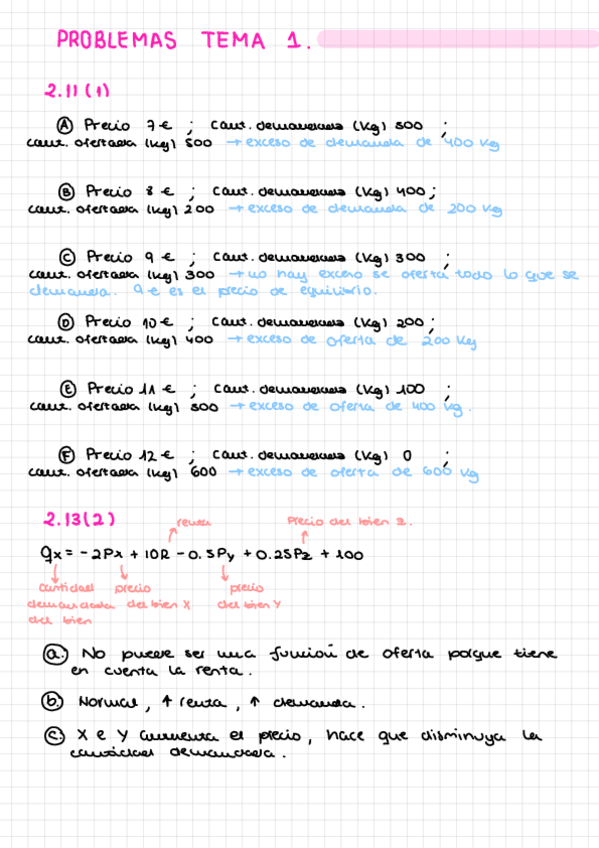 PROBLEMAS TEMA 1.
2.11(1)
Ⓐ Precio 7€ ; Cant. demandada (Kg) 500 ;
cant. ofertada (kg) 500 → exceso de demanda de 400 kg
Ⓑ Precio 8 € ; Cant. demandada (Kg) 400;
cant. ofertada (kg) 200 → exceso de demanda de 200 kg
Ⓒ Precio 9 € ; Cant. demandada (Kg) 300 ;
cant. ofertada (kg) 300 → no hay exceso se oferta todo lo que se
demanda. 9 € es el precio de equilibrio.
Ⓓ Precio 10 € ; Cant. demandada (Kg) 200 ;
cant. ofertada (kg) 400 → exceso de oferta de 200 Kg
Ⓔ Precio 11 € ; Cant. demandada (Kg) 100 ;
cant. ofertada (kg) 500 → exceso de oferta de 400 kg.
Ⓕ Precio 12 € ; Cant. demandada (Kg) 0 ;
cant. ofertada (kg) 600 → exceso de oferta de 600 kg
2.13(2)
renta Precio del bien z.
qx = -2Px + 10R - 0.5Py + 0.25Pz + 100
cantidad precio precio
demandada del bien X del bien Y
del bien
ⓐ No puede ser una función de oferta porque tiene
en cuenta la renta.
ⓑ Normal, ↑ renta, ↑ demanda.
ⓒ X e Y aumenta el precio, hace que disminuya la
cantidad demandada.